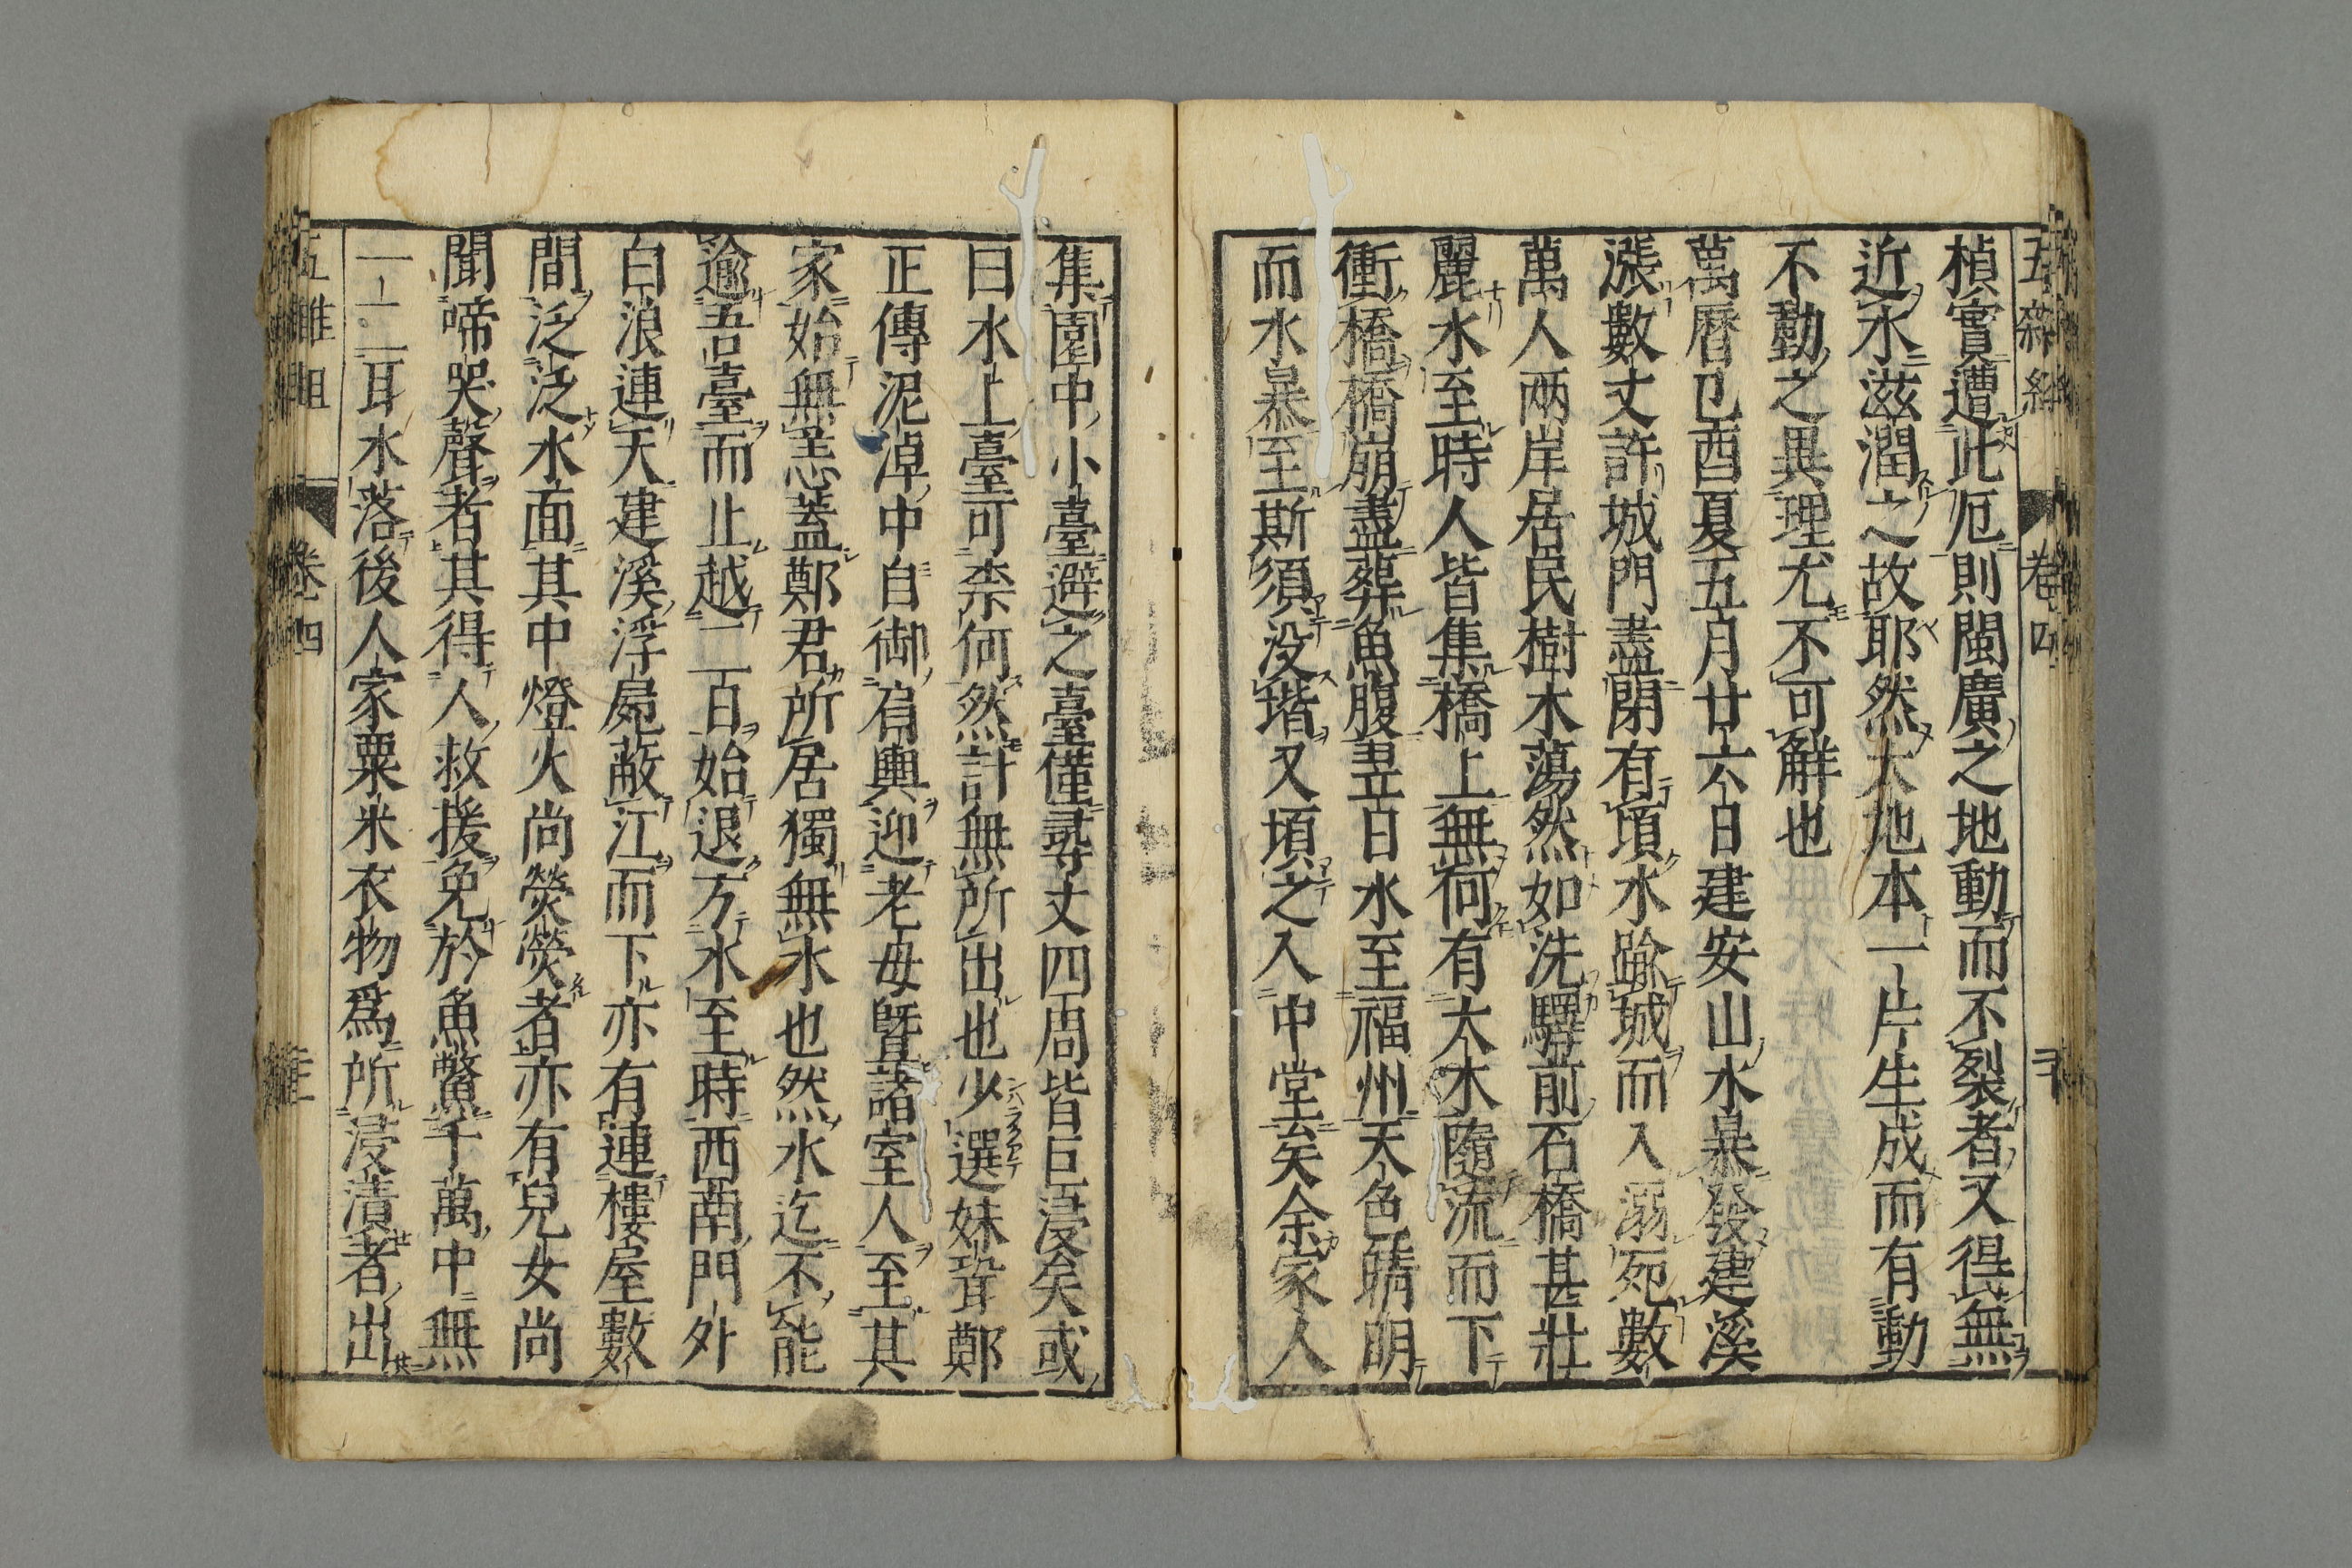 楨實遭此厄則閩廣之地動而不裂者又得無
近水滋潤之故耶然大地本一片生成而有動
不動之異理尤不可觧也
萬曆己酉夏五月廿六日建安山水暴發建溪
漲數丈許城門盡閉有頃水踰城而入溺死數
萬人兩岸居民樹木蕩然如洗驛前石橋甚壯
麗水至時人皆集橋上無何有大木隨流而下
衝橋橋崩盡葬魚腹翌日水至福州天色晴明
而水暴至斯須没堦又頃之入中堂矣余家人
集園中小臺避之臺僅尋丈四周皆巨浸矣或
曰水上臺可柰何然計無所出也少選妹壻鄭
正傳泥淖中自御肩輿迎老母暨諸室人至其
家始無恙蓋鄭君所居獨無水也然水迄不能
逾吾臺而止越二百始退方水至時西南門外
白浪連天建溪浮屍蔽江而下亦有連樓屋數
間泛泛水面其中燈火尚熒熒者亦有兒女尚
聞啼哭聲者其得人救援免於魚鱉千萬中無
一二耳水落後人家粟米衣物爲所浸漬者出
卷四
卷四